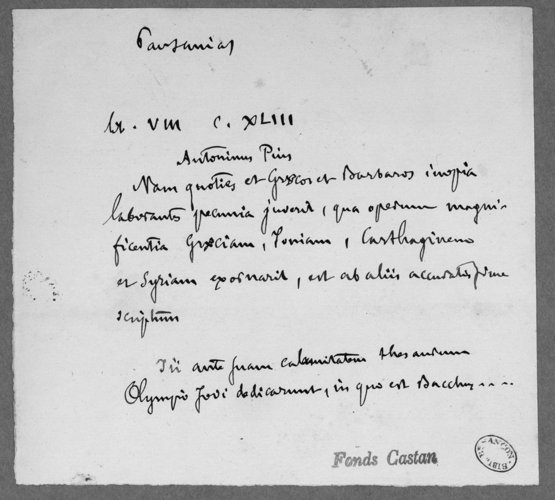 Pausanias
l. VIII c. XLIII
Antoninus Pius
Nam quoties et Græcos et Barbaros inopia
laborantes pecunia juverit, qua operum magni-
ficentia Græciam, Ioniam, Carthaginem
et Syriam exornarit, est ab aliis accuratissime
scriptum
Iii ante suam calamitatem thesaurum
Olympio Jovi dedicarunt, in quo est Bacchus ....
Fonds Castan
BESANÇON
BIBL.